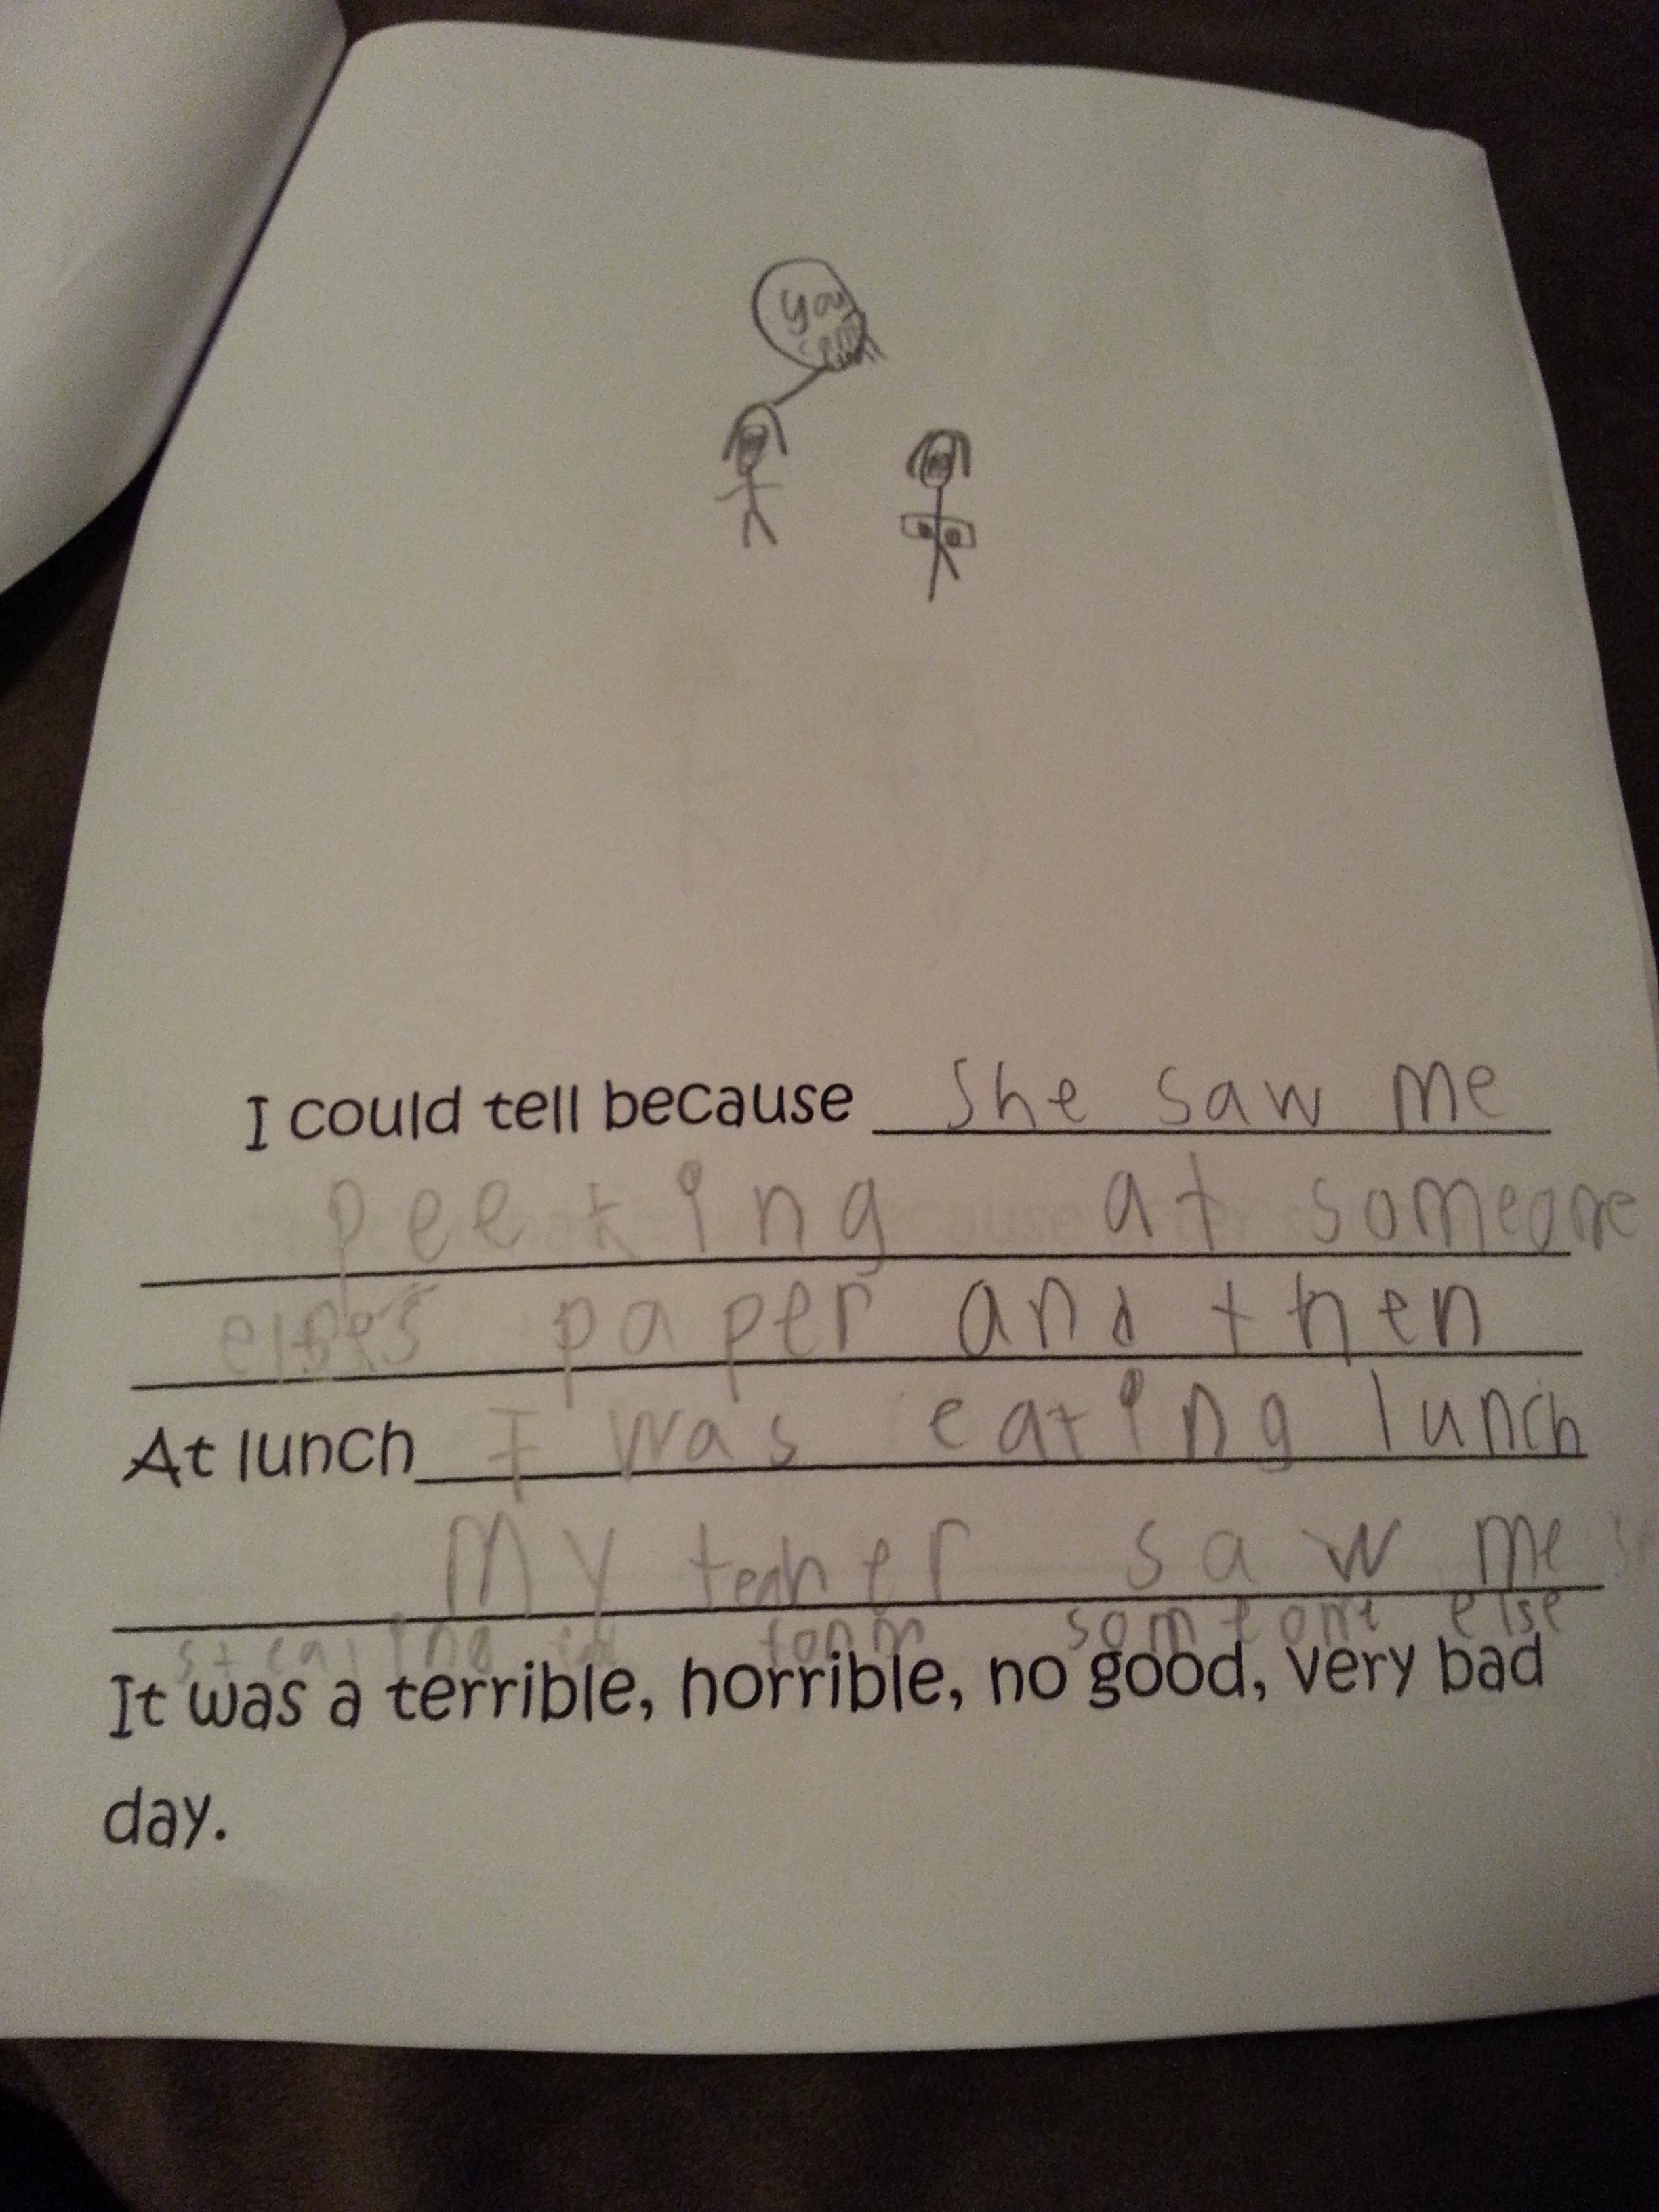 you
I could tell because She saw me
peeking at someone
paper and then
At lunch I was eating lunch
My teaher saw me
stealing someone else
It was a terrible, horrible, no good, very bad
day.